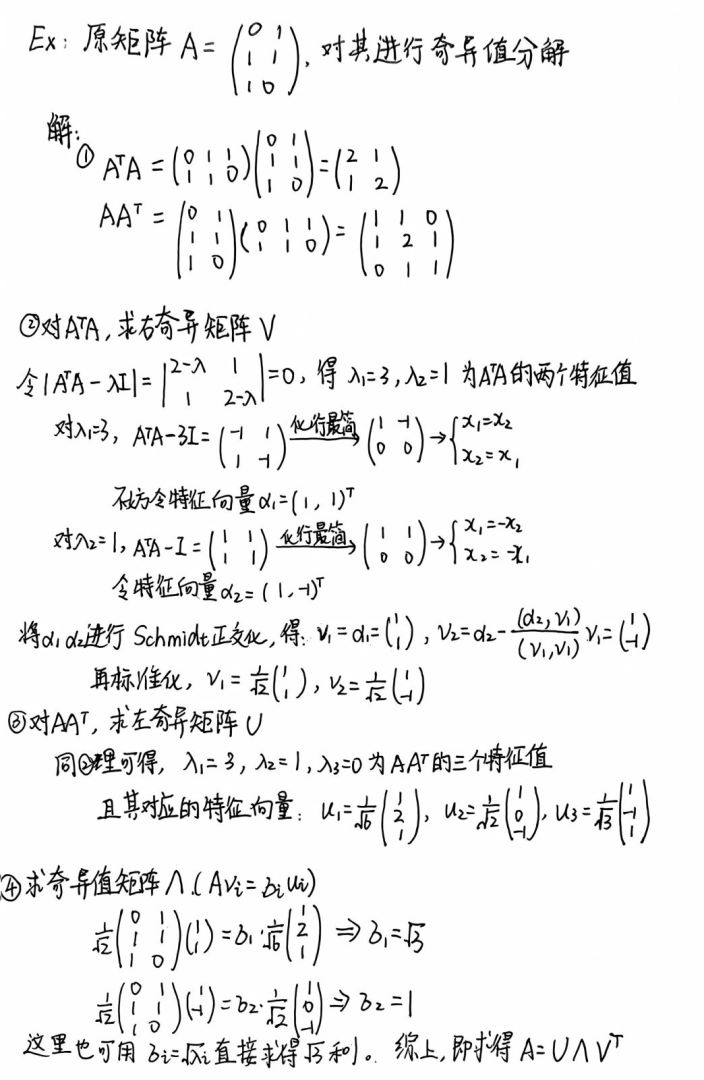 Ex: 原矩阵 A = (0 1; 1 1; 1 0), 对其进行奇异值分解
解:
① AᵀA = (0 1 1; 1 1 0)(0 1; 1 1; 1 0) = (2 1; 1 2)
AAᵀ = (0 1; 1 1; 1 0)(0 1 1; 1 1 0) = (1 1 0; 1 2 1; 0 1 1)
②对AᵀA, 求右奇异矩阵 V
令|AᵀA - λI| = |2-λ 1; 1 2-λ| = 0, 得 λ₁=3, λ₂=1 为AᵀA的两个特征值
对λ₁=3, AᵀA-3I = (-1 1; 1 -1) 化行最简→ (1 -1; 0 0) → {x₁=x₂; x₂=x₁
不妨令特征向量α₁=(1, 1)ᵀ
对λ₂=1, AᵀA-I = (1 1; 1 1) 化行最简→ (1 1; 0 0) → {x₁=-x₂; x₂=-x₁
令特征向量α₂=(1, -1)ᵀ
将α₁α₂进行 Schmidt正交化, 得: v₁=α₁=(1; 1), v₂=α₂-(α₂,v₁)/(v₁,v₁) v₁=(1; -1)
再标准化, v₁=1/√2(1; 1), v₂=1/√2(1; -1)
③对AAᵀ, 求左奇异矩阵 U
同②理可得, λ₁=3, λ₂=1, λ₃=0 为AAᵀ的三个特征值
且其对应的特征向量: u₁=1/√6(1; 2; 1), u₂=1/√2(1; 0; -1), u₃=1/√3(1; -1; 1)
④求奇异值矩阵 Λ (Avᵢ=σᵢuᵢ)
1/√2(0 1; 1 1; 1 0)(1; 1)=σ₁·1/√6(1; 2; 1) ⇒ σ₁=√3
1/√2(0 1; 1 1; 1 0)(1; -1)=σ₂·1/√2(1; 0; -1) ⇒ σ₂=1
这里也可用 σᵢ=√λᵢ 直接求得√3和1。综上, 即求得 A=UΛVᵀ